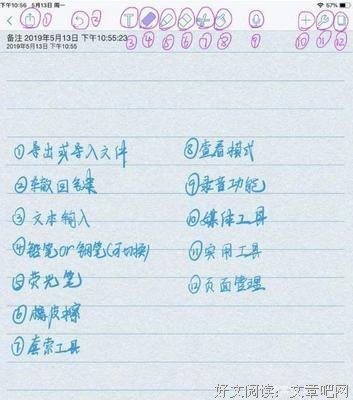 下午10:56 5月13日 周一
57%
T
① ② ③ ④ ⑤ ⑥ ⑦ ⑧ ⑨ ⑩ ⑪ ⑫
备注 2019年5月13日 下午10:55:23
2019年5月13日 下午10:55
①导出或导入文件
②车敲回名案
③文本输入
④铅笔or钢笔(可切换)
⑤荧光笔
⑥橡皮擦
⑦套索工具
⑧查看模式
⑨录音功能
⑩媒体工具
⑪实用工具
⑫页面管理
好文阅读:文章吧网